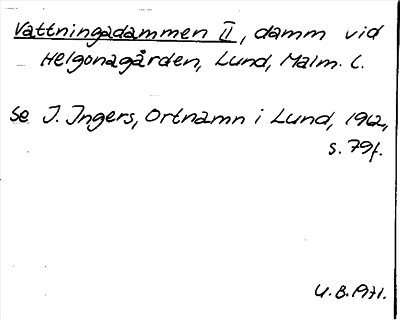 Vattningadammen II, damm vid
Helgonagården, Lund, Malm. L.
Se J. Ingers, Ortnamn i Lund, 1962,
s. 79f.
U.B. 1971.